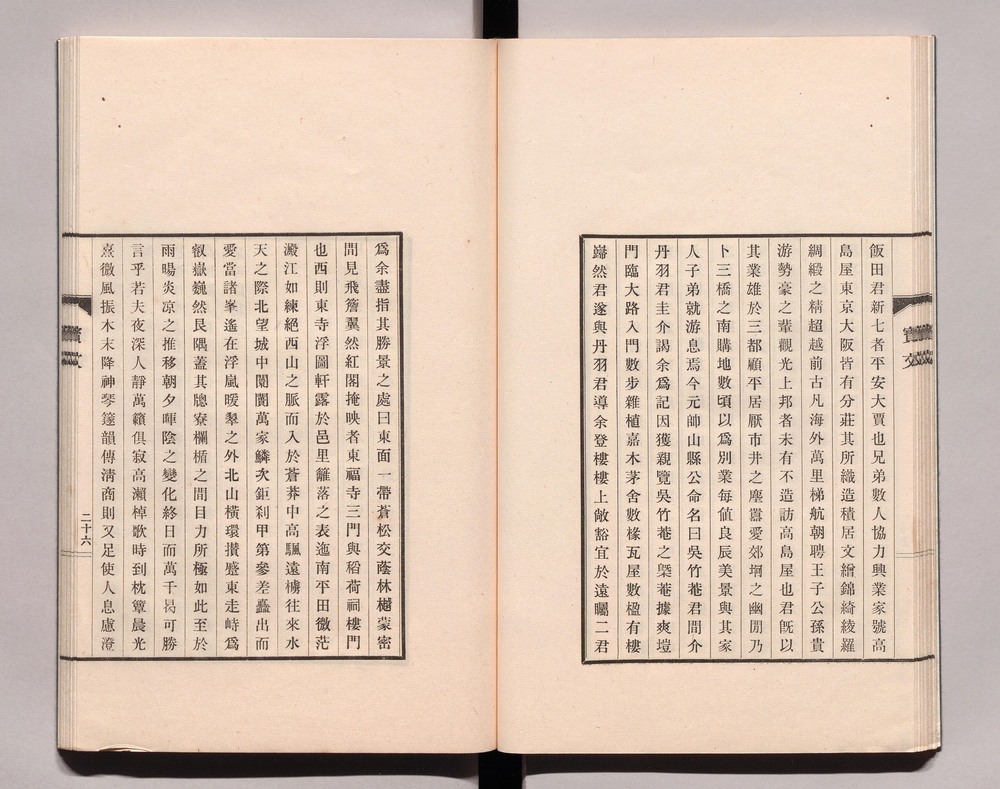 飯田君新七者平安大賈也兄弟數人協力興業家號高
島屋東京大阪皆有分莊其所織造積居文繒錦綺綾羅
綢緞之精超越前古凡海外萬里梯航朝聘王子公孫貴
游勢豪之輩觀光上邦者未有不造訪高島屋也君旣以
其業雄於三都顧平居厭市井之塵囂愛郊坰之幽閒乃
卜三橋之南購地數頃以爲別業每値良辰美景與其家
人子弟就游息焉今元帥山縣公命名曰吳竹菴君間介
丹羽君圭介謁余爲記因獲親覽吳竹菴之槩菴據爽塏
門臨大路入門數步雜植嘉木茅舍數椽瓦屋數楹有樓
巋然君遂與丹羽君導余登樓樓上敞豁宜於遠矚二君
爲余盡指其勝景之處曰東面一帶蒼松交蔭林樾蒙密
間見飛簷翼然紅閣掩映者東福寺三門與稻荷祠樓門
也西則東寺浮圖軒露於邑里籬落之表迤南平田微茫
澱江如練絕西山之脈而入於蒼莽中高颿遠檣往來水
天之際北望城中闤闠萬家鱗次鉅刹甲第參差矗出而
愛當諸峯遙在浮嵐暖翠之外北山橫環攢蹙東走峙爲
叡嶽巍然艮隅蓋其牕寮欄楯之間目力所極如此至於
雨暘炎凉之推移朝夕暉陰之變化終日而萬千曷可勝
言乎若夫夜深人靜萬籟俱寂高瀨棹歌時到枕簟晨光
熹微風振木末降神琴箑韻傳淸商則又足使人息慮澄
二十六